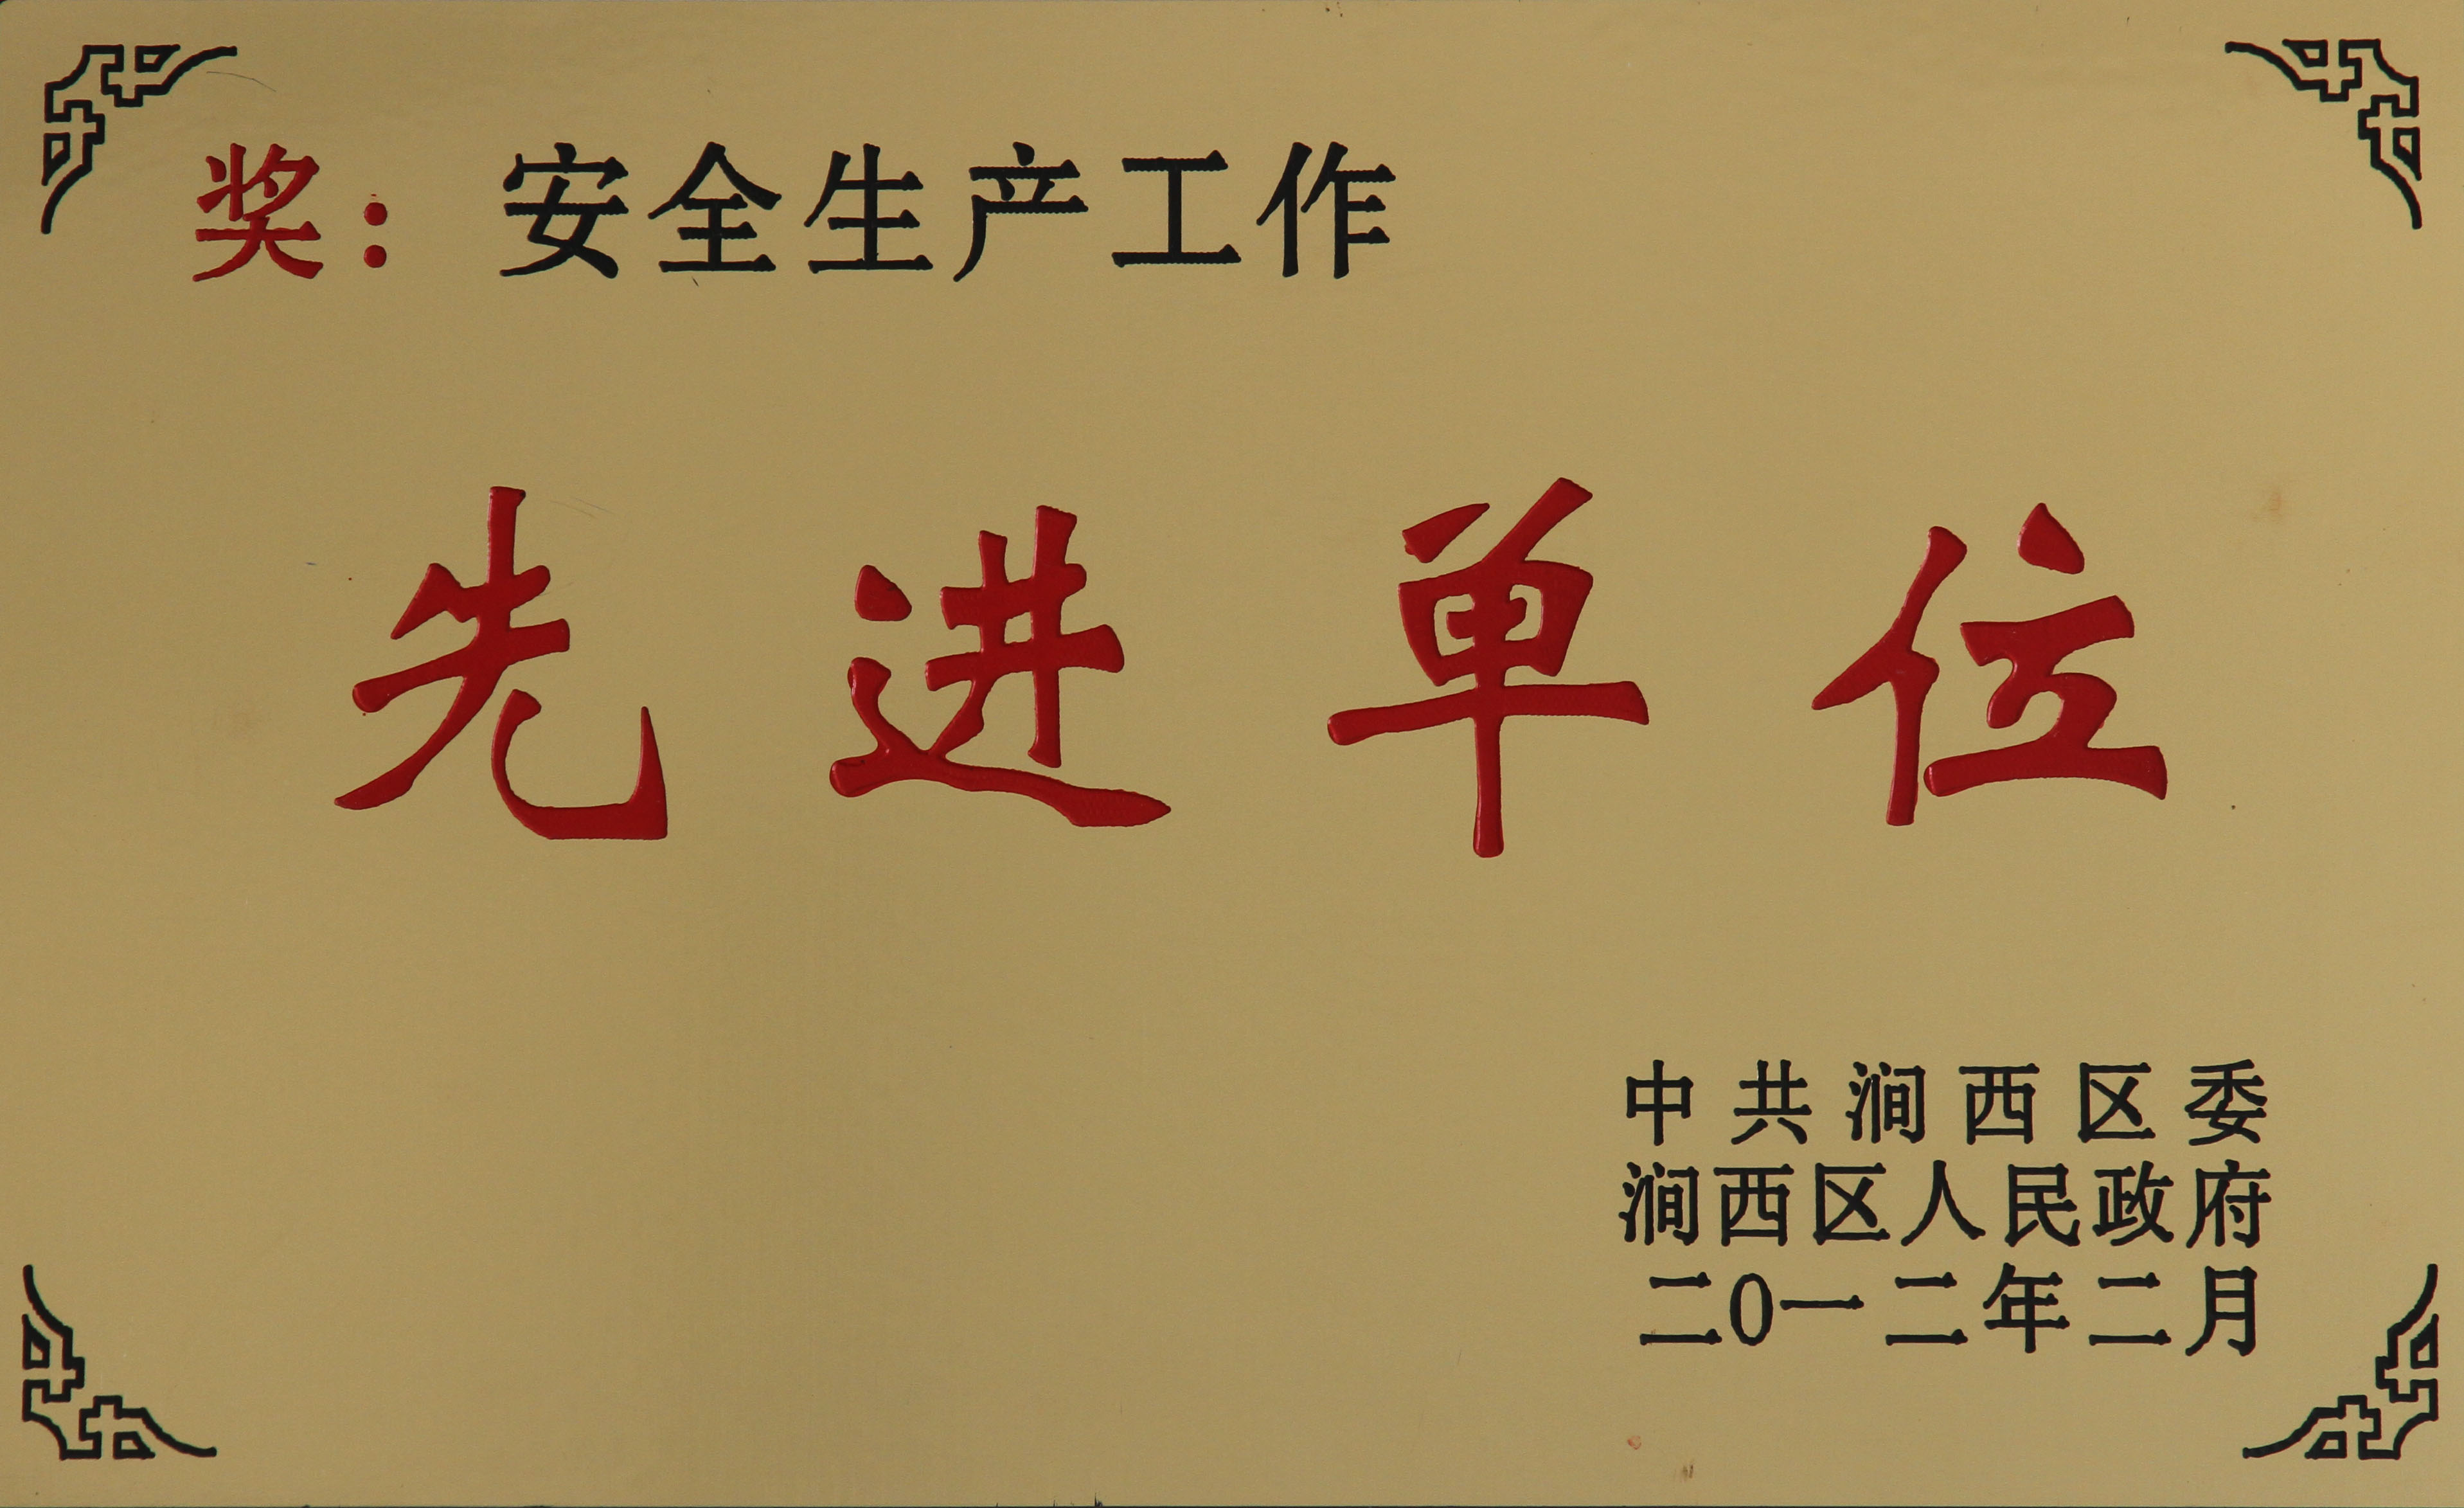 奖：安全生产工作
先进单位
中共涧西区委
涧西区人民政府
二0一二年二月